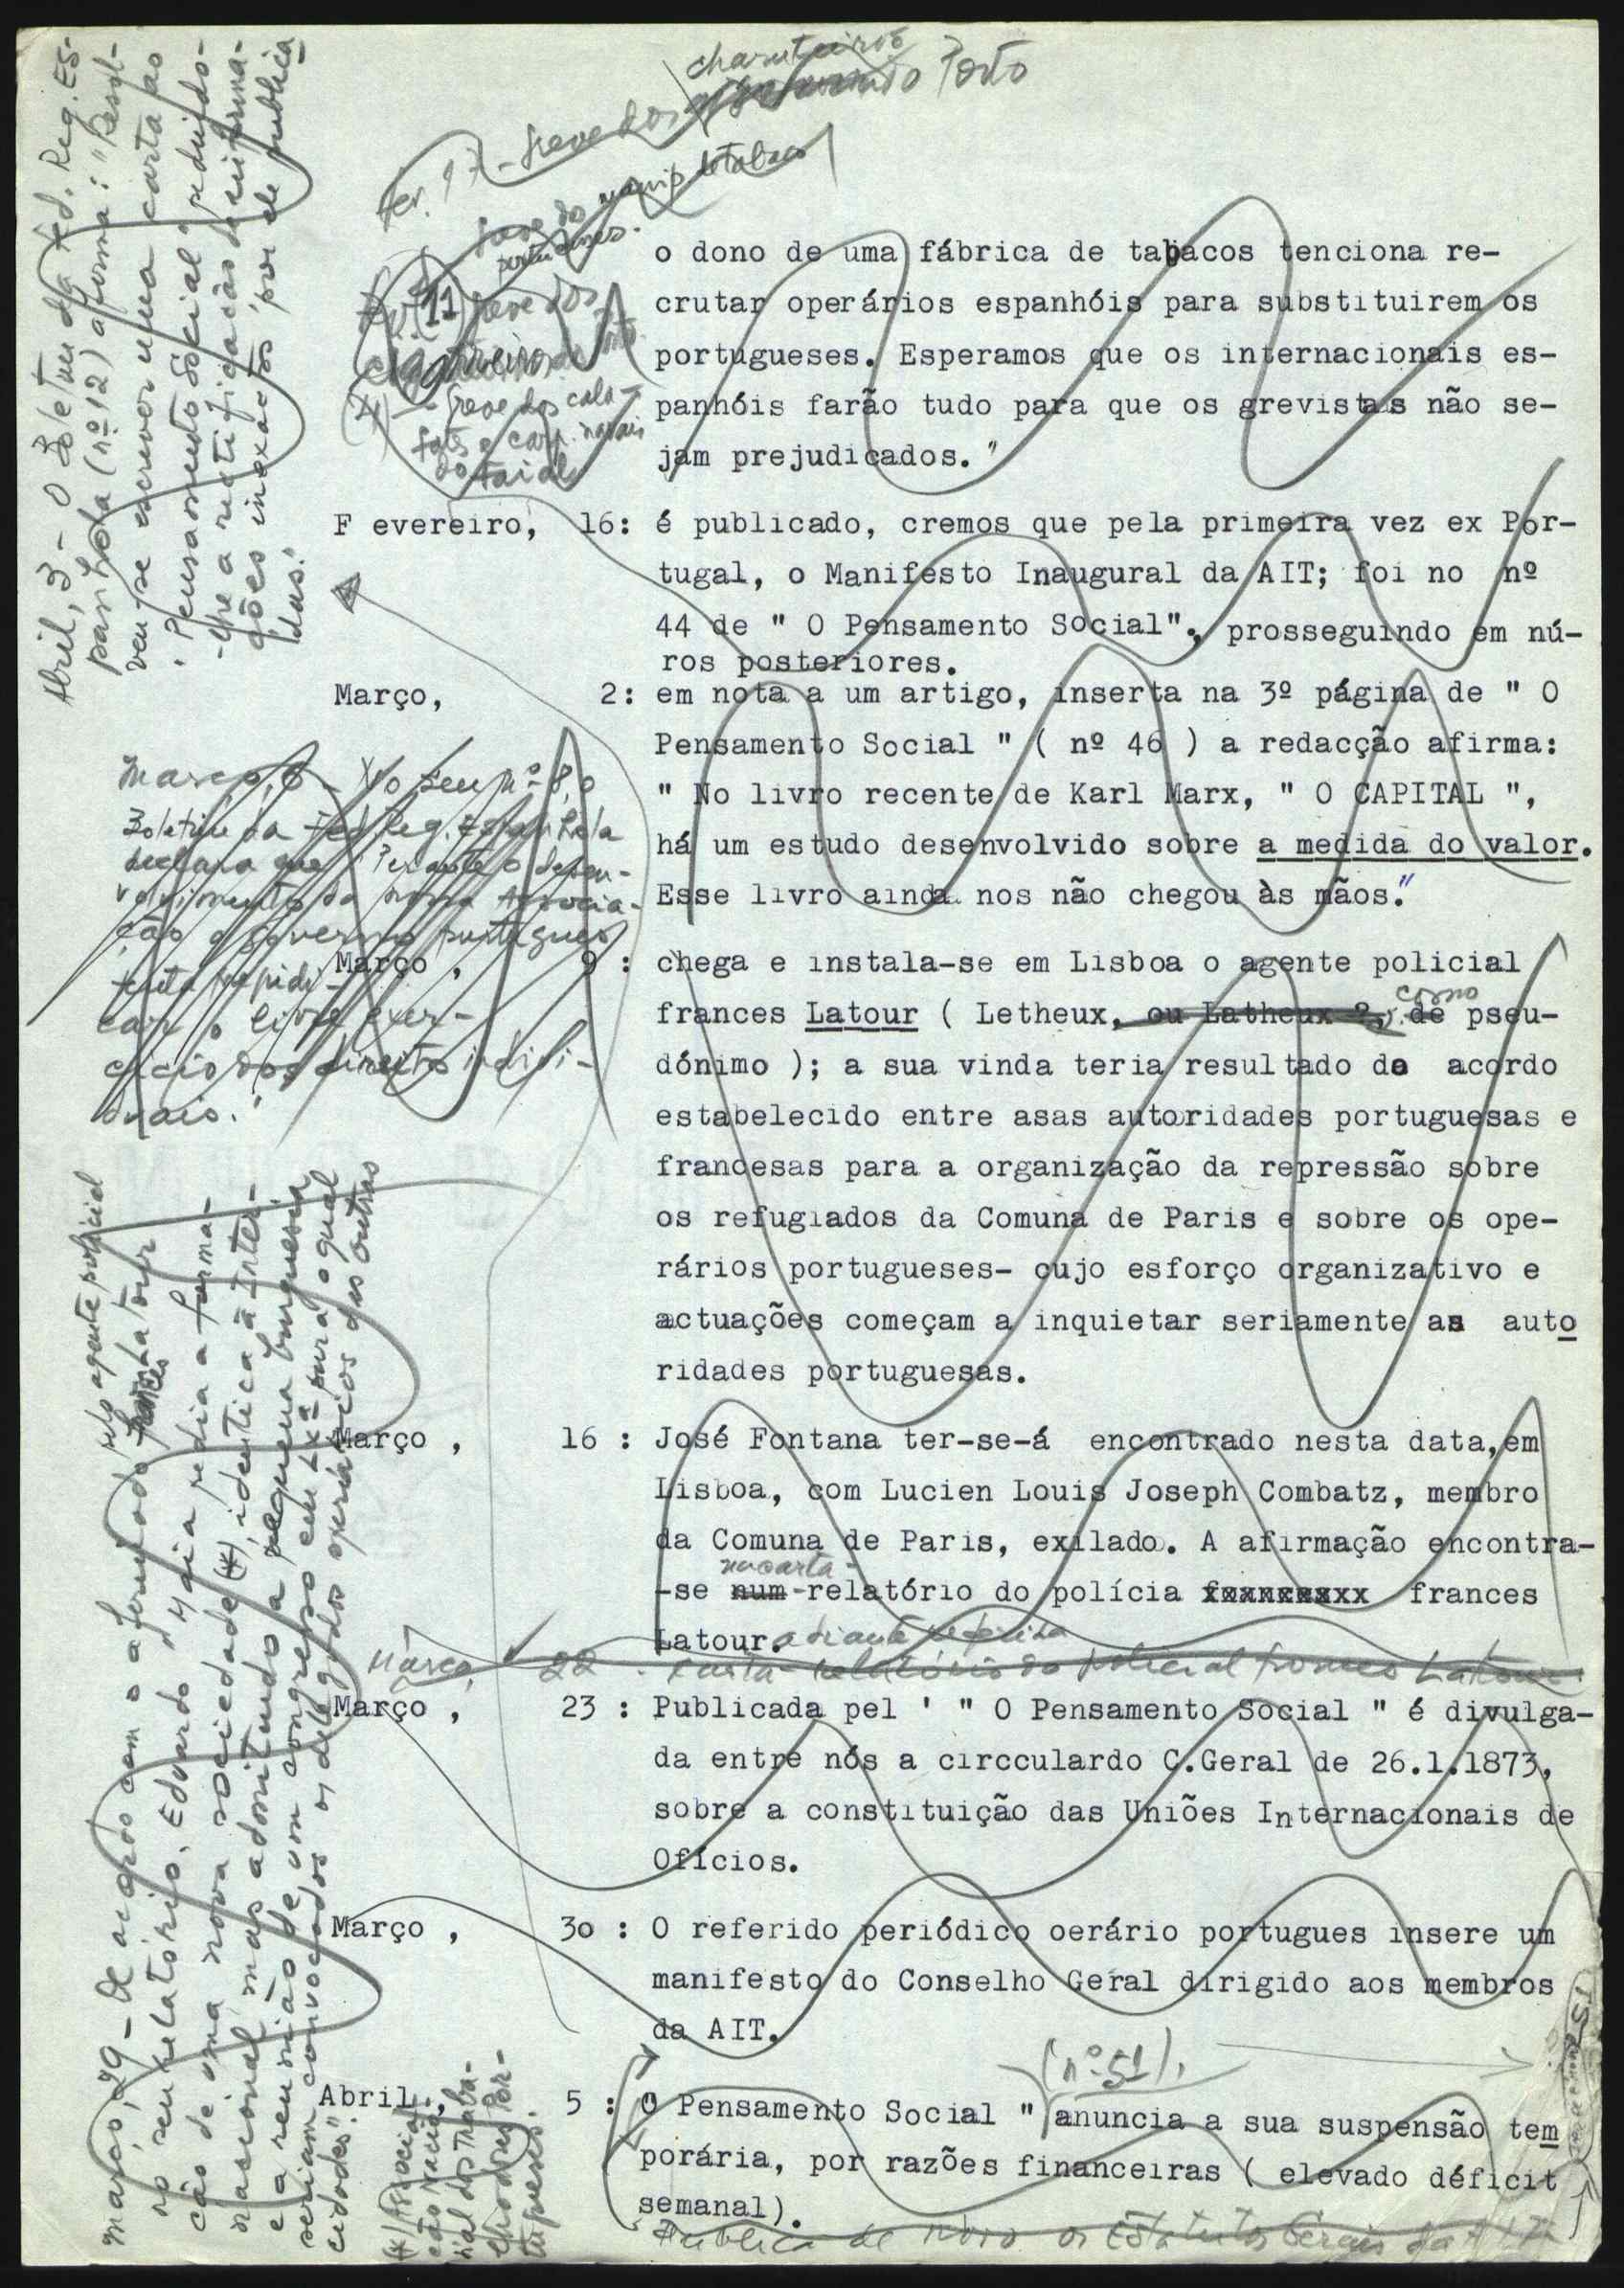 charuteiros
Fev. 17 - Greve dos Porto
greve dos manip. de tabaco
portuenses.
Fev. (11) greve dos
(*) - Greve dos cala-
fates e carp. navais
do Faial
o dono de uma fábrica de tabacos tenciona re-
crutar operários espanhóis para substituirem os
portugueses. Esperamos que os internacionais es-
panhóis farão tudo para que os grevistas não se-
jam prejudicados."
F evereiro, 16: é publicado, cremos que pela primeira vez ex Por-
tugal, o Manifesto Inaugural da AIT; foi no nº
44 de " O Pensamento Social", prosseguindo em nú-
ros posteriores.
Março, 2: em nota a um artigo, inserta na 3º página de " O
Pensamento Social " ( nº 46 ) a redacção afirma:
" No livro recente de Karl Marx, " O CAPITAL ",
há um estudo desenvolvido sobre a medida do valor.
Esse livro ainda nos não chegou às mãos."
Março , 9 : chega e instala-se em Lisboa o agente policial
como
frances Latour ( Letheux, ou Latheux ?, de pseu-
dónimo ); a sua vinda teria resultado de acordo
estabelecido entre asas autoridades portuguesas e
francesas para a organização da repressão sobre
os refugiados da Comuna de Paris e sobre os ope-
rários portugueses- cujo esforço organizativo e
actuações começam a inquietar seriamente as auto
ridades portuguesas.
Março , 16 : José Fontana ter-se-á encontrado nesta data,em
Lisboa, com Lucien Louis Joseph Combatz, membro
da Comuna de Paris, exilado. A afirmação encontra-
na carta-
-se num -relatório do polícia frances
Latour. adiante referida
Março, 22 : carta-relatório do policial frances Latour.
Março , 23 : Publicada pel ' " O Pensamento Social " é divulga-
da entre nós a circculardo C.Geral de 26.1.1873,
sobre a constituição das Uniões Internacionais de
Ofícios.
Março , 30 : O referido periódico oerário portugues insere um
manifesto do Conselho Geral dirigido aos membros
da AIT.
(nº 51),
Abril, 5 : O Pensamento Social " anuncia a sua suspensão tem
porária, por razões financeiras ( elevado déficit
semanal).
Publica de novo os Estatutos Gerais da AIT
Abril, 3 - O Boletim da Fed. Reg. Es-
panhola (nº 12) afirma: "Resol-
veu-se escrever uma carta ao
'Pensamento Social' pedindo-
-lhe a rectificação de informa-
ções inexactas por ele publica
das."
Março, 8 - No seu nº 8, o
Boletim da Fed. Reg. Espanhola
declara que "Perante o desen-
volvimento da nossa Associa-
ção o governo português
tenta
o livre exer-
cício dos direitos indivi-
duais."
Março, 29 - De acordo com o afirmado pelo agente policial
frances Latour
no seu relatório, Eduardo Maia pedia a forma-
ção de uma nova sociedade (*), identica à Inter-
nacional, mas admitindo a pequena burguesia
e a reunião de um congresso em Lxª para o qual
seriam convocados os delegados operários das outras
cidades".
(*) Associa-
ção Nacio-
nal dos Traba-
lhadores Por-
tugueses.